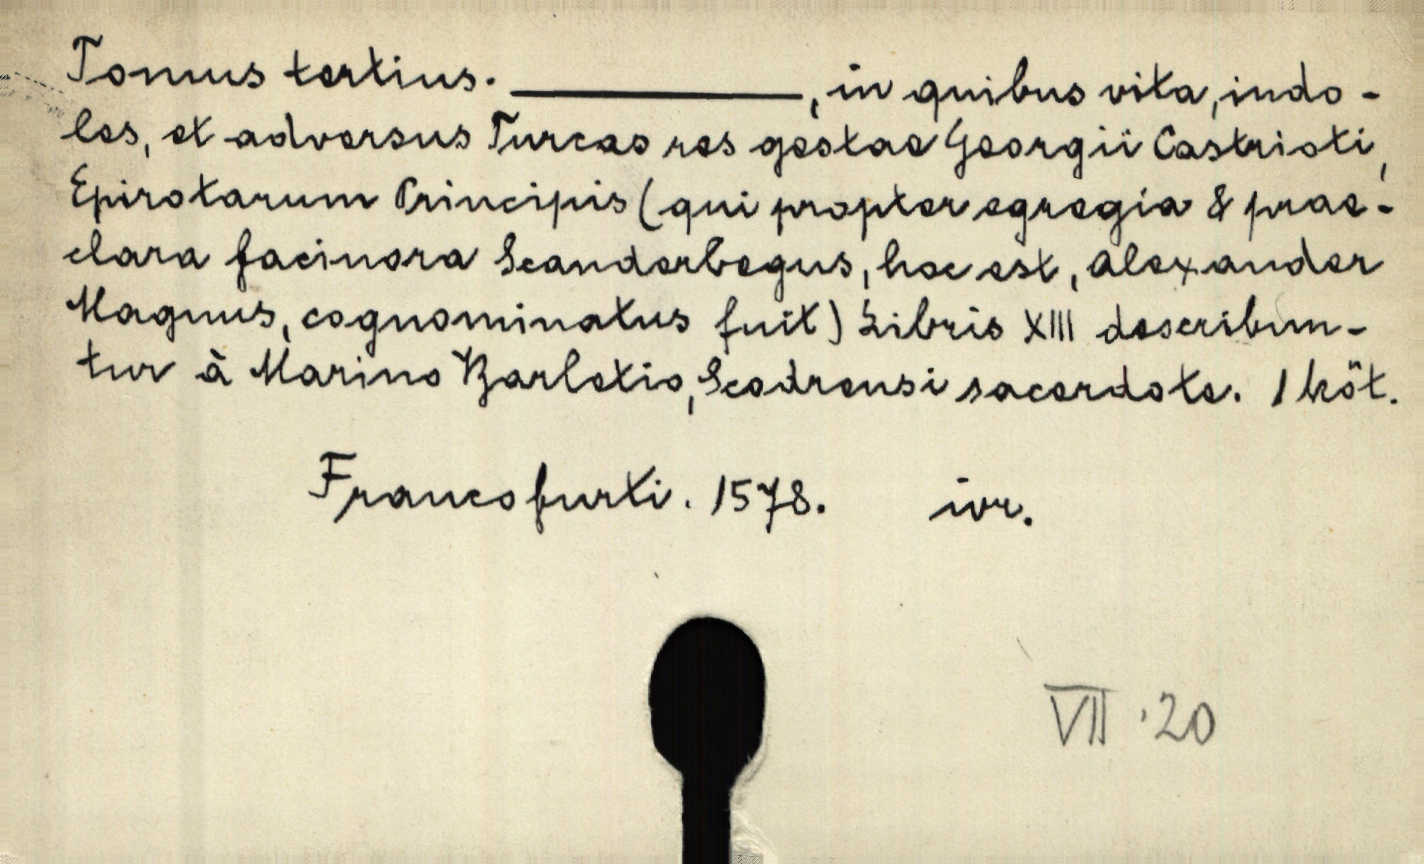 Tomus tertius. ———, in quibus vita, indo-
les, et adversus Turcas res gestae Georgii Castrioti,
Epirotarum Principis (qui propter egregia & prae-
clara facinora Scanderbegus, hoc est, Alexander
Magnus, cognominatus fuit) Libris XIII describun-
tur à Marino Barletio, Scodrensi sacerdote. 1 köt.
Francofurti. 1578. ivr.
VII. 20